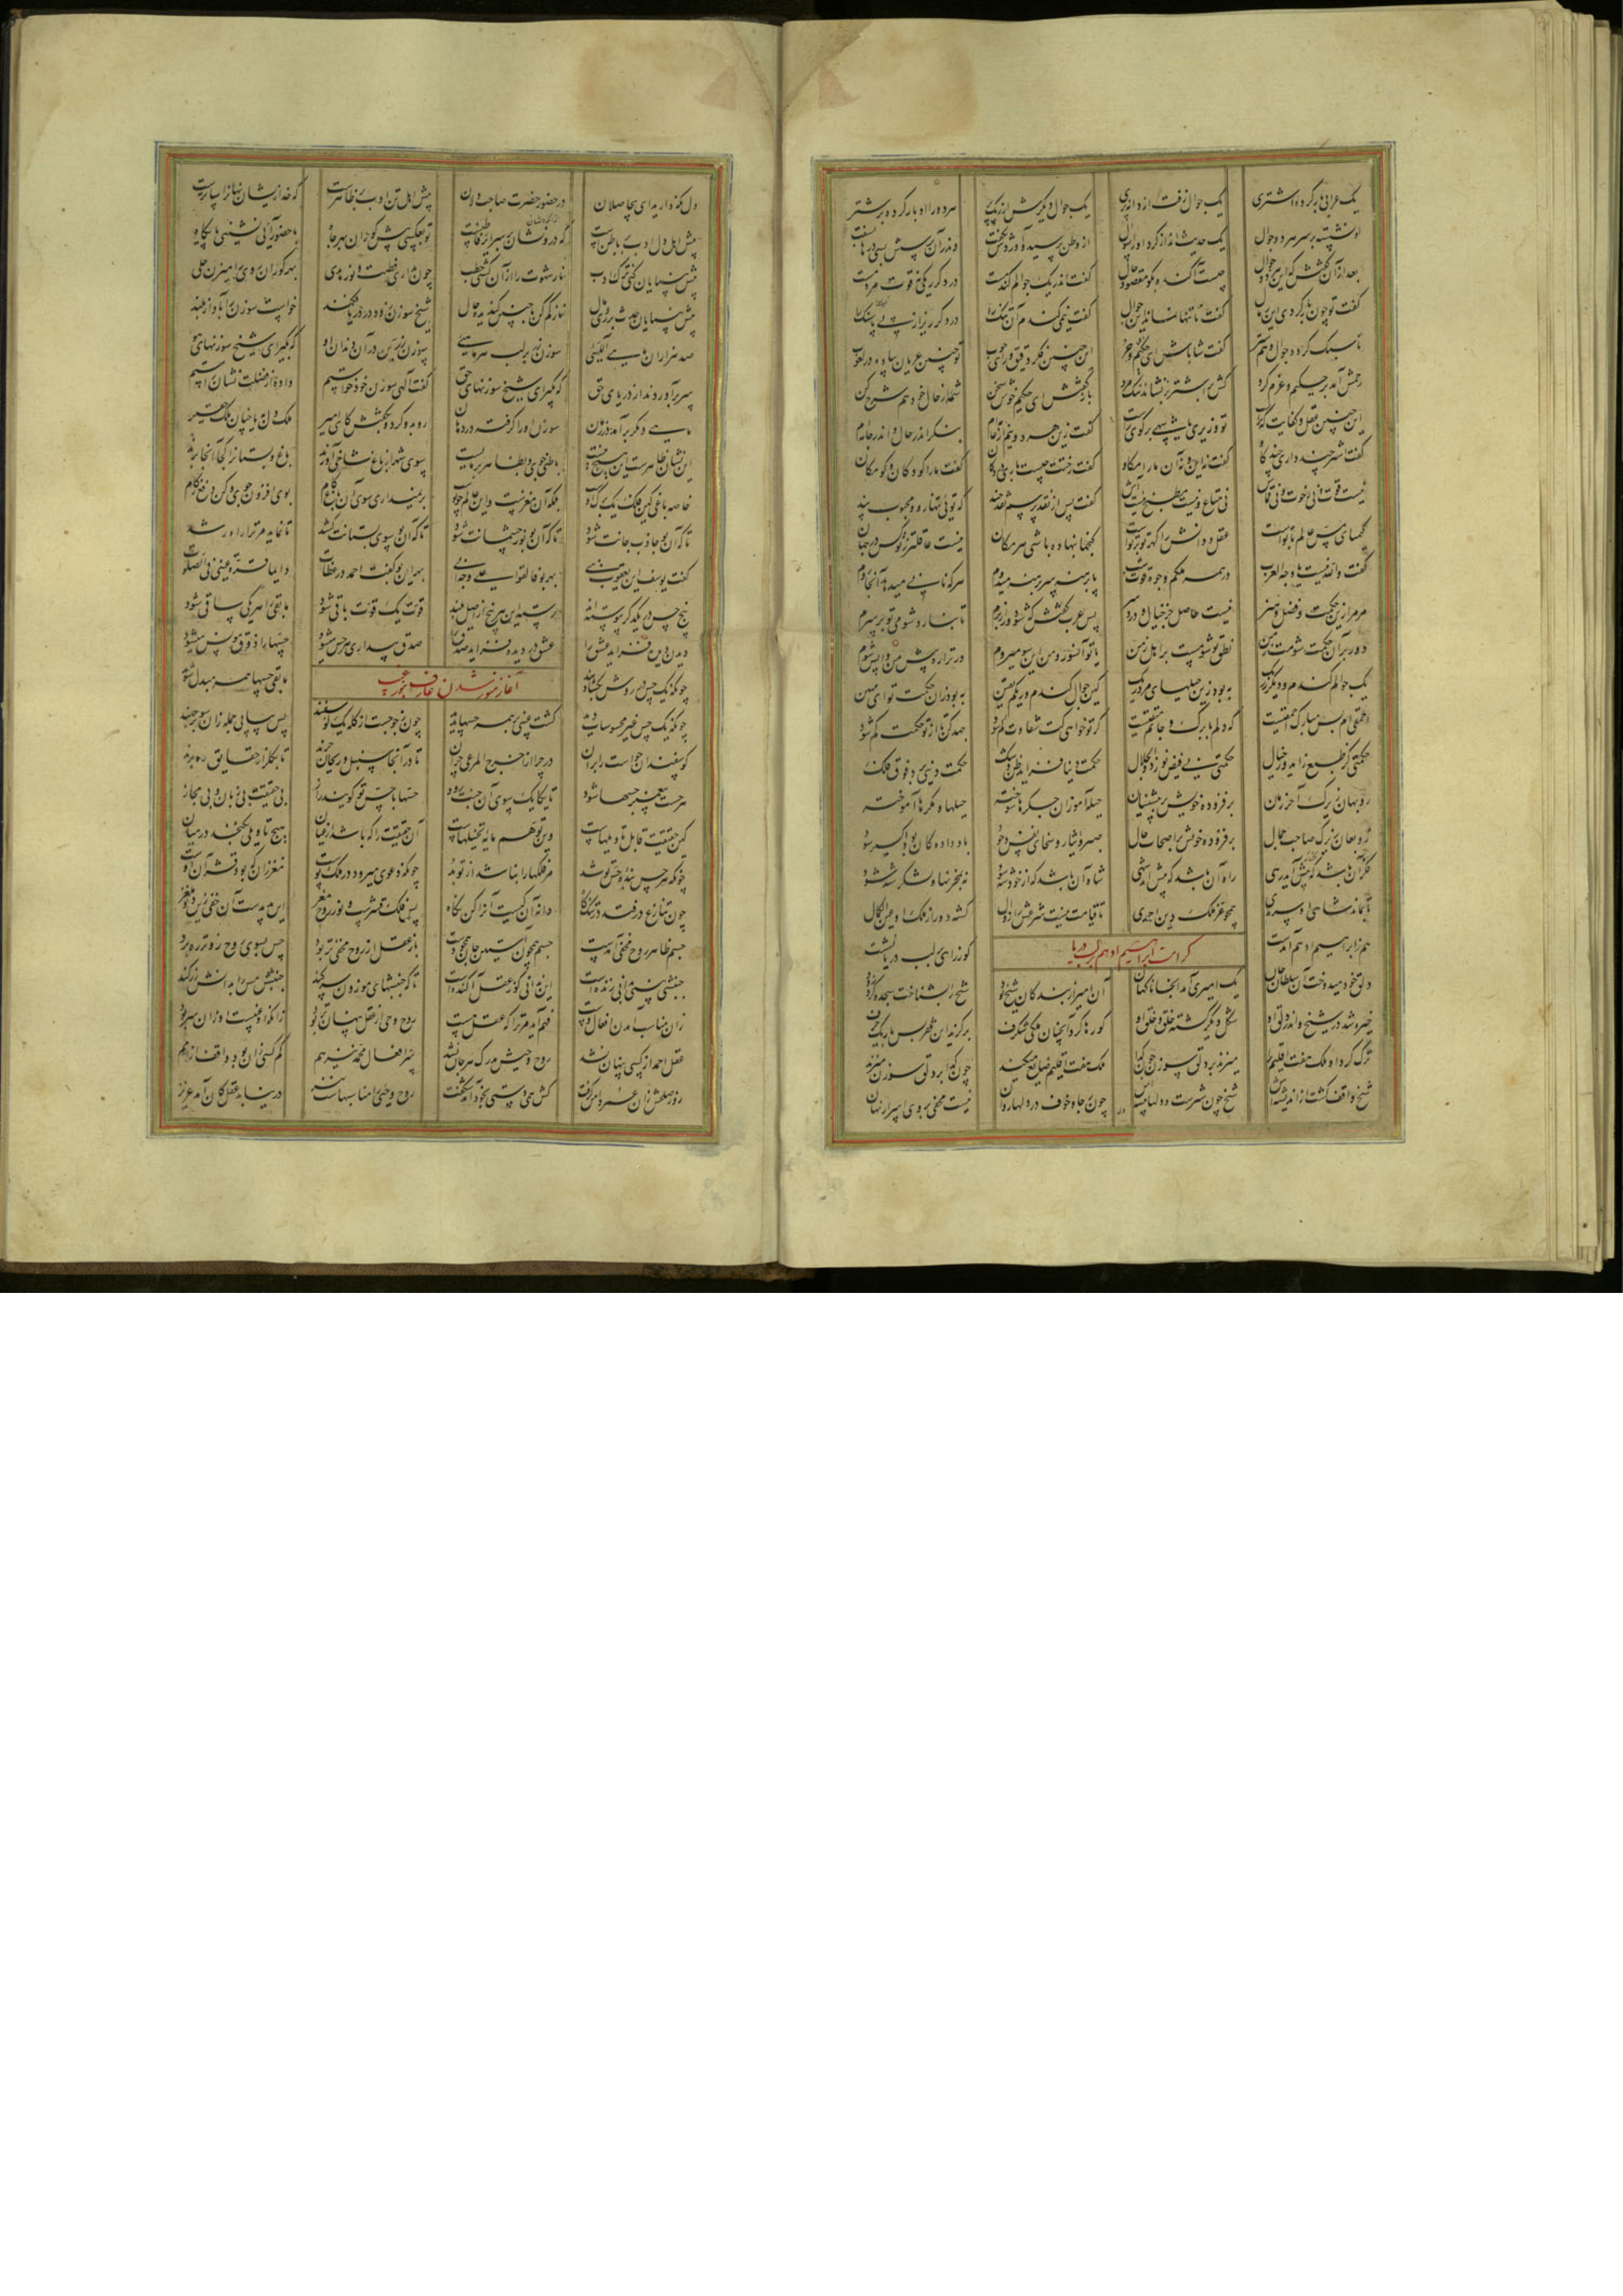 یک عرابی بار کرده اشتری یک جوال زفت از دانه پری یک جوال دیگرش از ریگ پر هر دو را او بار کرده بر شتر
او نشسته بر سر هر دو جوال یک حدیث انداز کرد او را سؤال از وطن پرسید و آوردش بگفت وندر آن پرسش بسی درها بسفت
بعد از آن گفتش که این هر دو جوال چیست آکنده بگو مصدوق حال گفت اندر یک جوالم گندمست در دگر ریگی نه قوت مردمست
گفت تو چون بار کردی این رمال گفت تا تنها نماند این جوال گفت نیم گندم آن تنگ را در دگر ریز از پی پاسنگ را
تا سبک گردد جوال و هم شتر گفت شاباش ای حکیم و حر این چنین فکر دقیق و رای خوب تو چنین عریان پیاده در لغوب
رحمش آمد بر حکیم و عزم کرد کش بر اشتر بر نشاند نیک مرد باز گفتش ای حکیم خوش سخن شمه از حال خود هم شرح کن
این چنین عقل و کفایت که تراست تو وزیری یا شهی بر گوی راست گفت زین هر دو نیم از عامه‌ام بنگر اندر حال و اندر جامه‌ام
گفت اشتر چند داری چند گاو گفت نه این و نه آن ما را مکاو گفت رختت چیست باری در دکان گفت ما را کو دکان و کو مکان
نیست قوت نی رخوت و نی قماش نی متاع و نیست مطبخ نیست آش گفت پس از نقد پرسم نقد چند که تویی تنها رو و محبوب پند
کیمیای مس عالم با تواست عقل و دانش را گهر تو بر تو است گنجها بنهاده باشی هر مکان نیست عاقلتر ز تو کس در جهان
گفت والله نیست یا وجه العرب در همه ملکم وجوه قوت شب پا برهنه سر برهنه میدوم هر که نانی میدهد آنجا روم
مر مرا زین حکمت و فضل و هنر نیست حاصل جز خیال و درد سر پس عرب گفتش که شو دور از برم تا نبارد شومی تو بر سرم
دور بر آن حکمت شومت ز من نطق تو شومست بر اهل زمن یا تو آنسو رو من این سو میروم ور ترا ره پیش من واپس شوم
یک جوالم گندم و دیگر ز ریگ به بود زین حیلهای مرده ریگ کین جوال گندم و ریگم یقین به بود زان حکمت تو ای مهین
احمقی ام بس مبارک احمقیست که دلم با برگ و جانم متقیست گر تو خواهی کت شقاوت کم شود جهد کن تا از تو حکمت کم شود
حکمتی کز طبع زاید وز خیال حکمتی بی فیض نور ذو الجلال حکمت دنیا فزاید ظن و شک حکمت دینی برد فوق فلک
روبهان زیرک آخر زمان بر فزوده خویش بر پیشینیان حیله آموزان جگرها سوخته حیلها و مکرها آموخته
صبر و ایثار و سخای نفس و جود باد داده کان بود اکسیر سود
فکر آن باشد که پیش آید رهی راه آن باشد که پیش آید شهی شاه آن باشد که از خود شه بود نه بمخزنها و لشکر شه شود
تا بماند شاهی او سرمدی همچو عز ملک دین احمدی تا قیامت نیست شرعش را زوال گشته دور از ملک او عین الکمال
کرامات ابراهیم ادهم بر لب دریا
هم ز ابراهیم ادهم آمدست کو ز راهی بر لب دریا نشست
دلق خود میدوخت آن سلطان جان یک امیری آمد آنجا ناگهان آن امیر از بندگان شیخ بود شیخ را بشناخت سجده کرد زود
خیره شد در شیخ و اندر دلق او شکل دیگر گشته خلق و خلق او کو رها کرد آنچنان ملکی شگرف بر گزید این فقر بس باریک حرف
ترک کرد او ملک هفت اقلیم را میزند بر دلق سوزن چون گدا ملک هفت اقلیم ضایع میکند چون گدا بر دلق سوزن میزند
شیخ واقف گشت از اندیشه‌اش شیخ چون شیرست و دلها بیشه‌اش چون رجا و خوف در دلها روان نیست مخفی بر وی اسرار نهان
دل نگه دارید ای بی حاصلان در حضور حضرت صاحب دلان پیش اهل تن ادب بر ظاهرست که خدا زیشان نهان را ساترست
پیش اهل دل ادب بر باطنست که دروشان بر سرایر فاطنست تو بعکسی پیش کوران بهر جاه با حضور آیی نشینی پایگاه
پیش بینایان کنی ترک ادب نار شهوت را از آن گشتی حطب چون نداری فطنت و نور هدی بهر کوران روی را میزن جلی
پیش بینایان حدث در روی مال ناز کم کن با چنین گندیده حال شیخ سوزن زود در دریا فکند خواست سوزن را بآواز بلند
صد هزاران ماهی اللهیی سوزن زر بر لب هر ماهیی سوزن زرین در آن دندان او که بگیر ای شیخ سوزنهای هو
سر برآوردند از دریای حق که بگیر ای شیخ سوزنهای حق گفت الهی سوزن خود خواستیم دادی از فضلت نشان راستیم
ماهیی دیگر برآمد در زمان سوزن او را گرفته در دهان رو بدو کرد و بگفتش کای امیر ملک دل به یا چنان ملک حقیر
این نشان ظاهرست این هیچ نیست باطنی جوی و بظاهر بر مایست سوی شهر از باغ شاخی آورند باغ و بستان را کجا آنجا برند
خاصه باغی کین فلک یک برگ اوست بلکه آن مغزست و این عالم چو پوست بر نمیداری سوی آن باغ گام بوی افزون جوی و کن دفع زکام
تا که آن بو جاذب جانت شود تا که آن بو نور چشمانت شود تا که آن بو سوی بستانت کشد تا نماید مر ترا راه رشد
گفت یوسف ابن یعقوب نبی بهر بو فالقوا علی وجه ابی بهر این بو گفت احمد در عظات دایما قرة عینی فی الصلوة
پنج حس با یکدگر پیوسته‌اند رسته این هر پنج از اصل بلند قوت یک قوت باقی شود ما بقی را هر یکی ساقی شود
دیدن دیده فزاید عشق را عشق در دیده فزاید صدق را صدق بیداری هر حس میشود حسها را ذوق مونس میشود
آغاز منور شدن عارف بنور غیب
چونکه یک حس در روش بگشاد بند ما بقی حسها همه مبدل شوند
چونکه یک حس غیر محسوسات دید گشت غیبی بر همه حسها پدید چون ز جو جست از گله یک گوسفند پس پیاپی جمله زان سو برجهند
گوسفندان حواست را بران در چرا از اخرج المرعی چران تا در آنجا سنبل و ریحان چرند تا بگلزار حقایق ره برند
هر حست پیغمبر حسها شود تا یکایک سوی آن جنت رود حسها با حس تو گویند راز بی حقیقت بی زبان و بی مجاز
کین حقیقت قابل تاویلهاست وین توهم مایه تخییلهاست آن حقیقت را که باشد از عیان هیچ تاویلی نگنجد در میان
چونکه هر حس بنده حس تو شد مر فلکها را نباشد از تو بد چونکه دعوی میرود در ملک پوست مغز آن کو بود قشر آن اوست
چون تنازع در فتد در تنگ کاه دانه آن کیست آن را کن نگاه پس فلک قشرست و نور روح مغز این پدیدست آن خفی زین رو ملغز
جسم ظاهر روح مخفی آمدست جسم همچون آستین جان همچو دست باز عقل از روح مخفی تر بود حس بسوی روح زوتر ره برد
جنبشی بینی بدانی زنده است این ندانی کو ز عقل آکنده است تا که جنبشهای موزون سر کند جنبش مس را بدانش زر کند
زان مناسب آمدن افعال دست فهم آید مر ترا که عقل هست روح وحی از عقل پنهان‌تر بود زانکه او غیبست و او زان سر بود
عقل احمد از کسی پنهان نشد روح وحیش مدرک هر جان نشد
روح وحیی را مناسبهاست نیز در نیابد عقل کان آمد عزیز